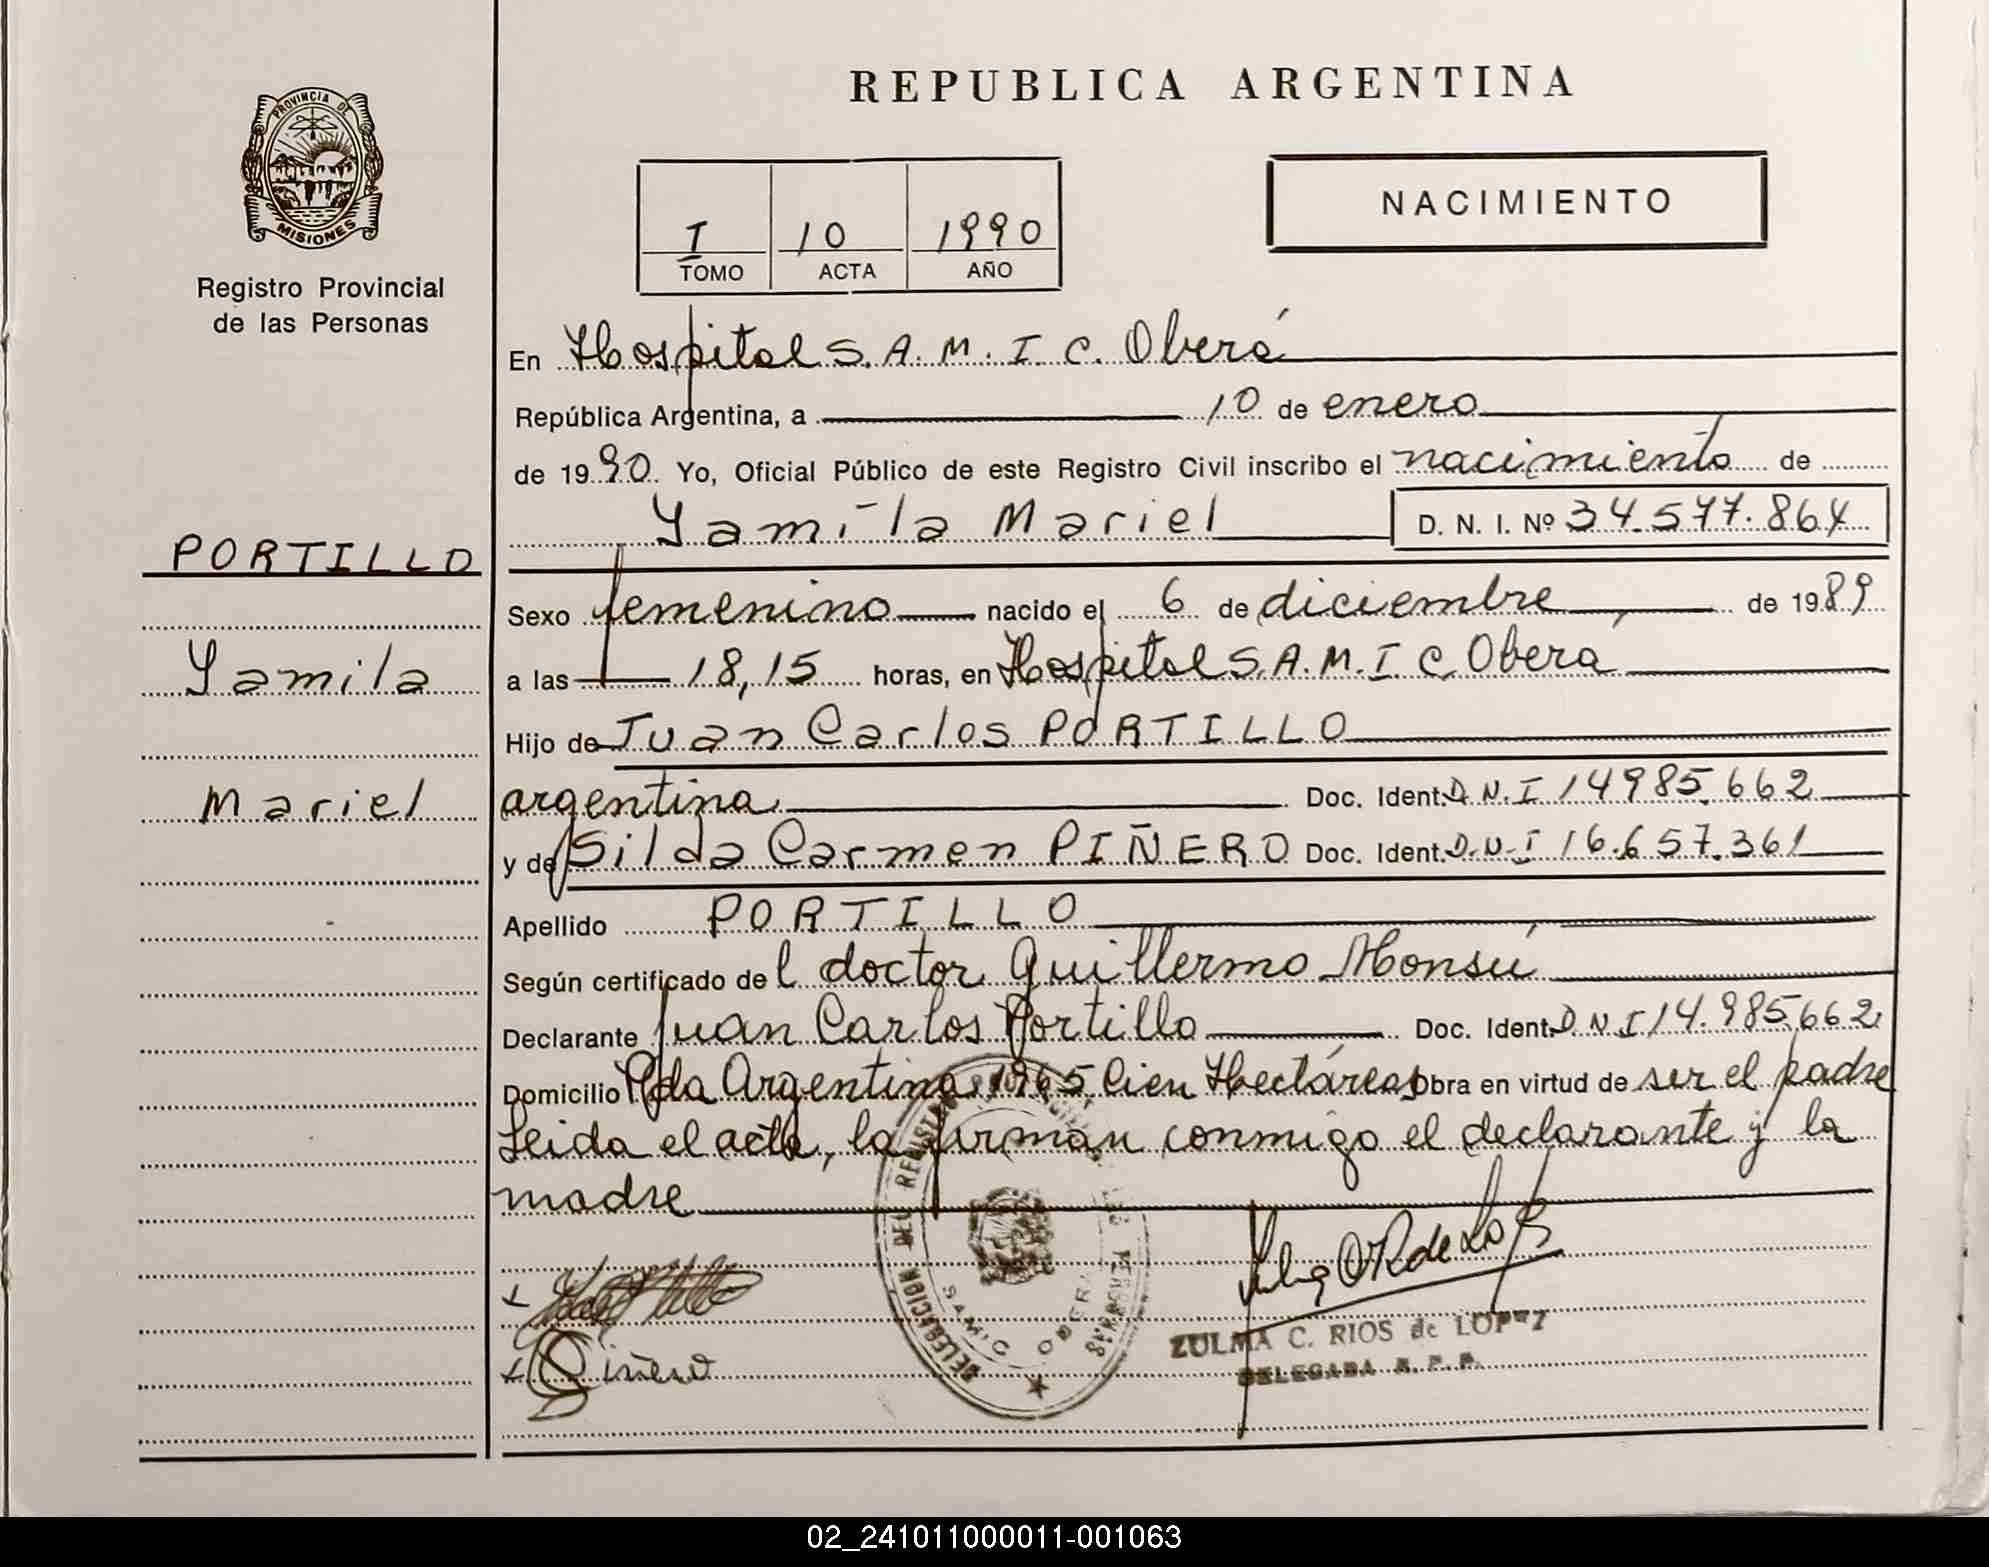 PROVINCIA DE
MISIONES
Registro Provincial
de las Personas
PORTILLO
Yamila
Mariel
REPUBLICA ARGENTINA
I 10 1990
TOMO ACTA AÑO
NACIMIENTO
En Hospital S.A.M.I.C. Oberá
República Argentina, a 10 de enero
de 1990. Yo, Oficial Público de este Registro Civil inscribo el nacimiento de
Yamila Mariel D. N. I. Nº 34.577.864
Sexo femenino nacido el 6 de diciembre de 1989
a las 18,15 horas, en Hospital S.A.M.I.C Oberá
Hijo de Juan Carlos PORTILLO
argentina Doc. Ident. D.N.I 14985.662
y de Silda Carmen PIÑERO Doc. Ident. D.N.I 16.657.361
Apellido PORTILLO
Según certificado del doctor Guillermo Monsú
Declarante Juan Carlos Portillo Doc. Ident. D.N.I 14.985.662
Domicilio Pda Argentina 1965 Cien Hectáreas obra en virtud de ser el padre
Leida el acta, la firman conmigo el declarante y la
madre
Piñero
DELEGACION DEL REGISTRO
LAS PERSONAS
SAMIC OBERA
ZULMA C. RIOS de LOPEZ
DELEGADA R. P. P.
02_241011000011-001063